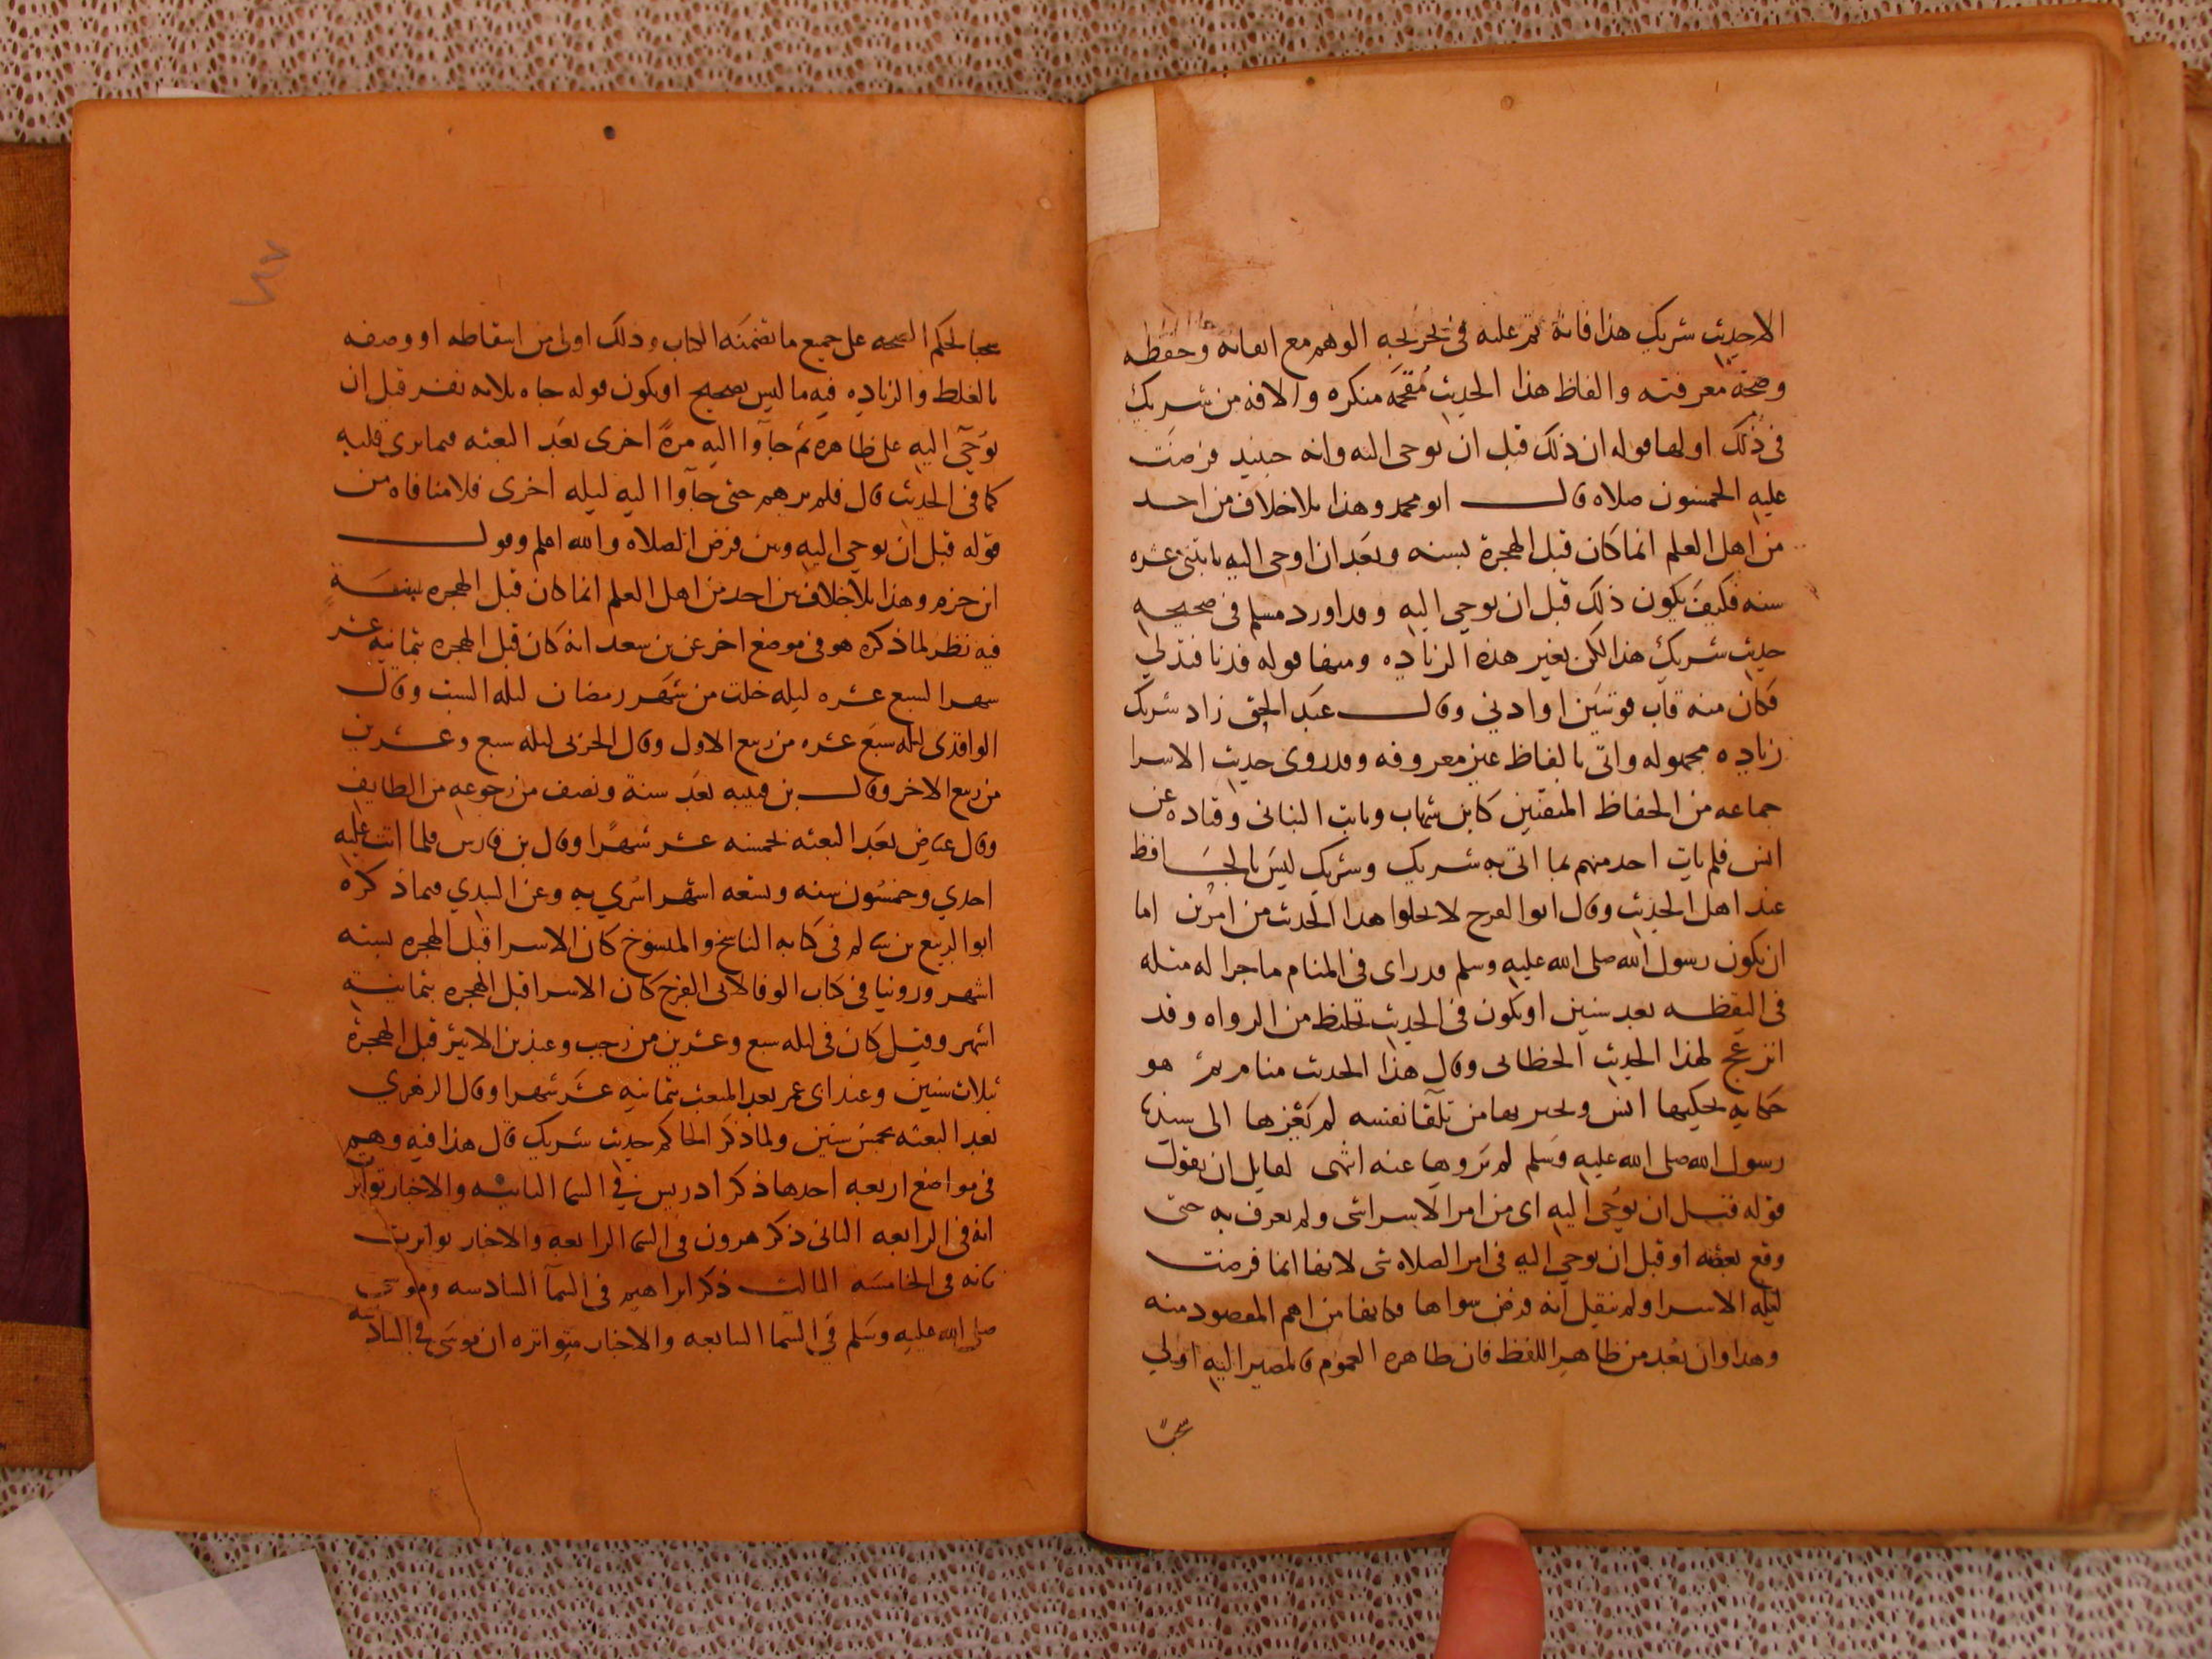 الا حديث شريك هذا فانه تم عليه في تخريجه الوهم مع اتقانه وحفظه
وصحة معرفته والفاظ هذا الحديث مقحمه منكره والافه من شريك
في ذلك اولها قوله ان ذلك قبل ان يوحى اليه وانه حينيد فرضت
عليه الخمسون صلاه قال ابو محمد وهذا بلا خلاف من احد
من اهل العلم انما كان قبل الهجرة بسنه وبعد ان اوحى اليه باثنتى عشره
سنه فكيف يكون ذلك قبل ان يوحي اليه وقد اورد مسلم في صحيحه
حديث شريك هذا لكن بغير هذه الزياده ومنها قوله فدنا فتدلي
فكان منه قاب قوسين او ادني وقال عبد الحق زاد شريك
زياده مجهوله واتى بالفاظ غير معروفه وقد روى حديث الاسرا
جماعه من الحفاظ المتقنين كابن شهاب وثابت البناني وقتاده عن
انس فلم يات احد منهم بما اتى به شريك وشريك ليس بالحافظ
عند اهل الحديث وقال ابو الفرج لا يخلوا هذا الحديث من امرين اما
ان يكون رسول الله صلى الله عليه وسلم قد راى في المنام ما جرا له مثله
في اليقظه بعد سنين او يكون في الحديث تخليط من الرواه وقد
انزعج لهذا الحديث الخطابي وقال هذا الحديث منام ثم هو
حكايه يحكيها انس ويخبر بها من تلقا نفسه لم يعزها الى
رسول الله صلى الله عليه وسلم لم يروها عنه انتهى لقايل ان يقول
قوله قبل ان يوحي اليه اى من امر الاسرا شى ولم يعرف به حتى
وقع بعضه او قبل ان يوحي اليه في امر الصلاه شى لانها انما فرضت
ليلة الاسرا ولم ينقل انه فرض سواها فكانها من اهم المقصود منه
وهذا وان بعد من ظاهر اللفظ فان ظاهره العموم فالمصير اليه اولي
محبا
محبا لحكم الصحه على جميع ما تضمنه الكتاب وذلك اولى من اسقاطه او وصفه
بالغلط والزياده فيه ما ليس بصحيح او يكون قوله جاه ثلاثه نفر قبل ان
يوحى اليه على ظاهره ثم جآوا اليه مرة اخرى بعد البعثه فيما يرى قلبه
كما في الحديث قال فلم يرهم حتى جآوا اليه ليله اخرى فلا منافاه من
قوله قبل ان يوحي اليه وبين فرض الصلاه والله اعلم وقول
ابن حزم وهذا بلا خلاف من احد من اهل العلم انما كان قبل الهجره بسنة
فيه نظر لما ذكره هو في موضع اخر عن بن سعد انه كان قبل الهجره بثمانيه عشر
شهرا لسبع عشره ليله خلت من شهر رمضان ليله السبت وقال
الواقدى ليلة سبع عشره من ربيع الاول وقال الحربى ليله سبع وعشرين
من ربيع الاخر وقال بن قتيبه بعد سنة ونصف من رجوعه من الطايف
وقال عياض بعد البعثه بخمسه عشر شهرا وقال بن فارس فلما اتت عليه
احدي وخمسون سنه وتسعه اشهر اسري به وعن السدي فيما ذكره
ابو الربيع بن سالم في كتابه الناسخ والمنسوخ كان الاسرا قبل الهجره بسته
اشهر وروينا في كتاب الوفا لابى الفرج كان الاسرا قبل الهجره بثمانية
اشهر وقيل كان في ليله سبع وعشرين من رجب وعند بن الاثير قبل الهجرة
بثلاث سنين وعند ابى عمر بعد المبعث بثمانيه عشر شهرا وقال الزهري
بعد البعثه بخمس سنين ولما ذكر الحاكم حديث شريك قال هذا فيه وهم
في مواضع اربعه احدها ذكر ادريس في السما الثانيه والاخبار تواتر
انه في الرابعه الثانى ذكر هرون في السما الرابعه والاخبار تواترت
بانه في الخامسه الثالث ذكر ابراهيم في السمآ السادسه وموسى
صلى الله عليه وسلم في السما السابعه والاخبار متواتره ان موسى في السادسه